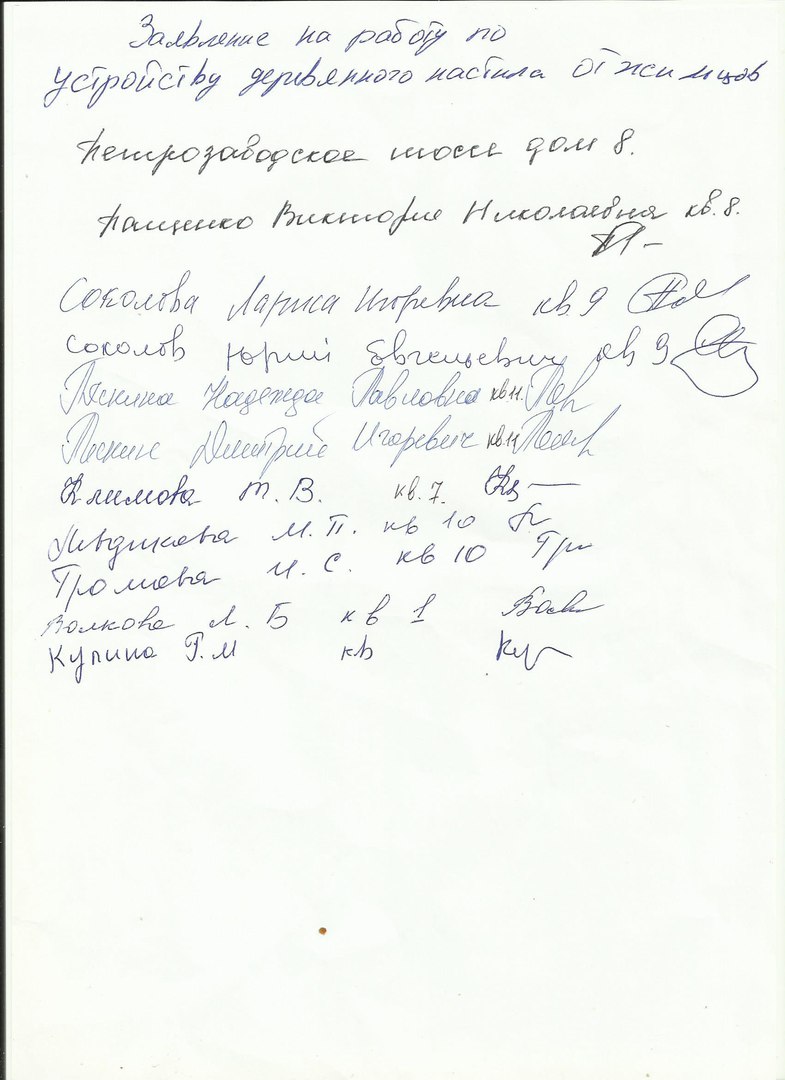 Заявление на работу по
устройству деревянного настила от жильцов
Петрозаводское шоссе дом 8.
Пащенко Виктория Николаевна кв. 8.
Соколова Лариса Игоревна кв. 9
Соколов Юрий Евгеньевич кв 9
Надежда Павловна кв 11.
Дмитрий Игоревич кв 11
Климова Т. В. кв. 7.
М. П. кв 10
Громова И. С. кв 10
Волкова Л. Б кв 1
Купина Г. М кв